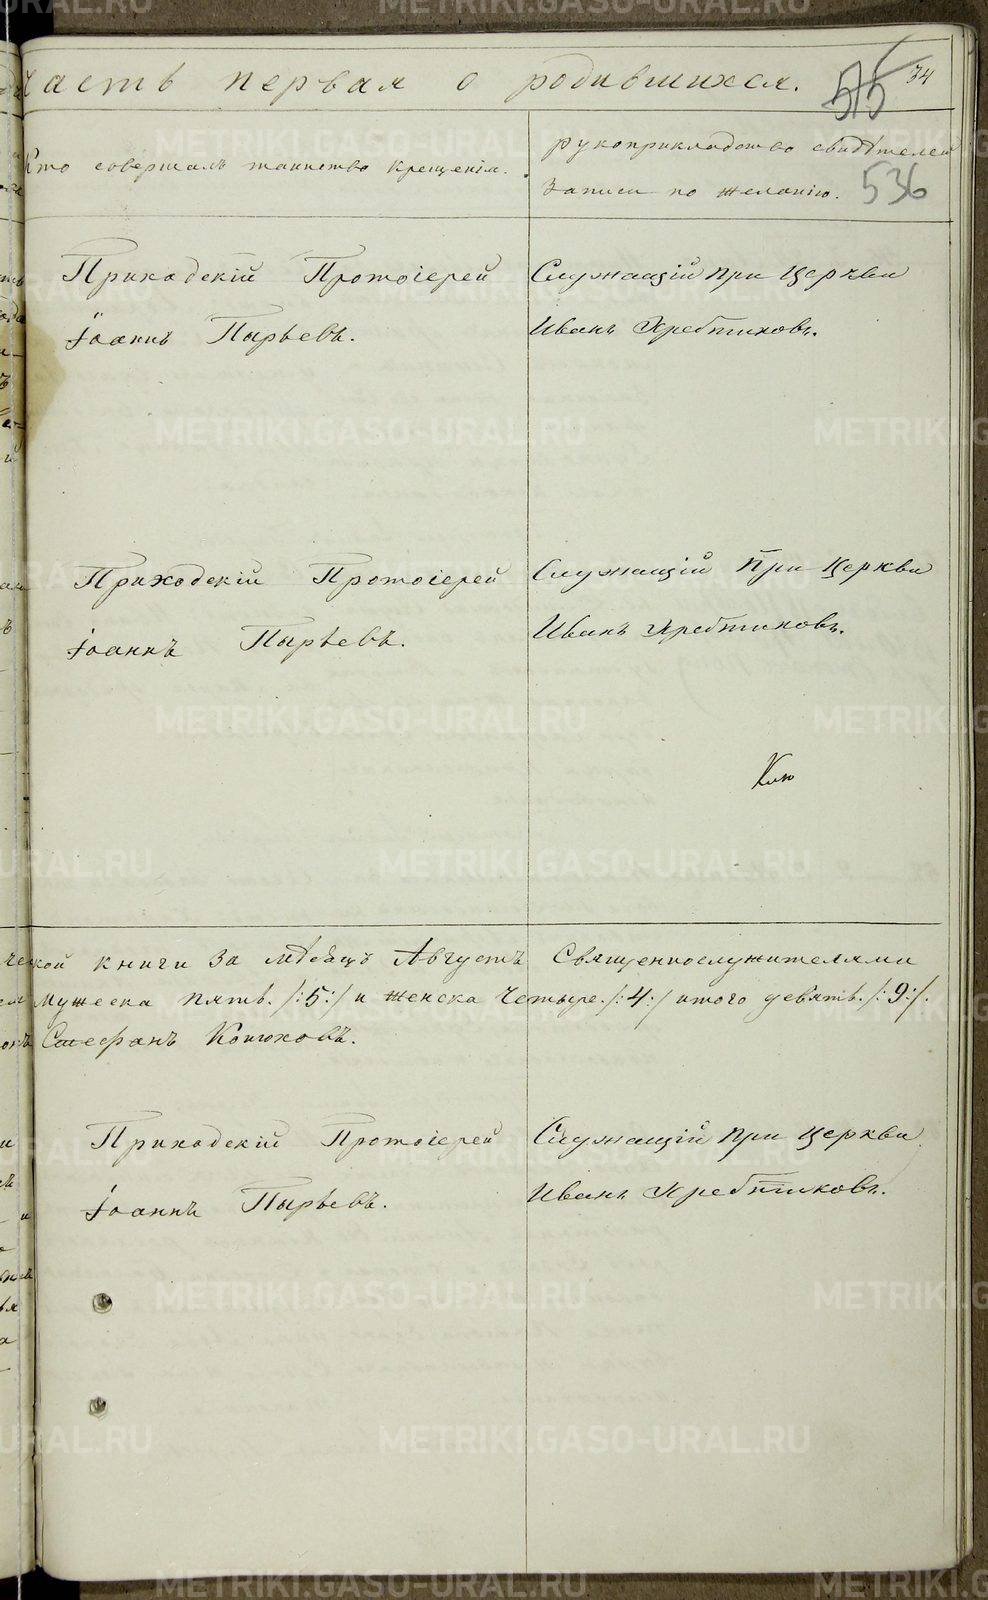 Часть первая о родившихся.
515 34
Кто совершалъ таинство крещенія.
рукоприкладство свидѣтелей
записи по желанію. 536
Приходскій Протоіерей
Іоаннъ Пырьевъ.
Служащій при Церкви
Иванъ
Приходскій Протоіерей
Іоаннъ Пырьевъ.
Служащій при Церкви
Иванъ
Клю
ческой книги за мѣсяцъ Августъ Священнослужителями
мужеска пять /:5:/ и женска четыре /:4:/ итого девять /:9:/.
Стефанъ Конюховъ.
Приходскій Протоіерей
Іоаннъ Пырьевъ.
Служащій при Церкви
Иванъ
METRIKI.GASO-URAL.RU